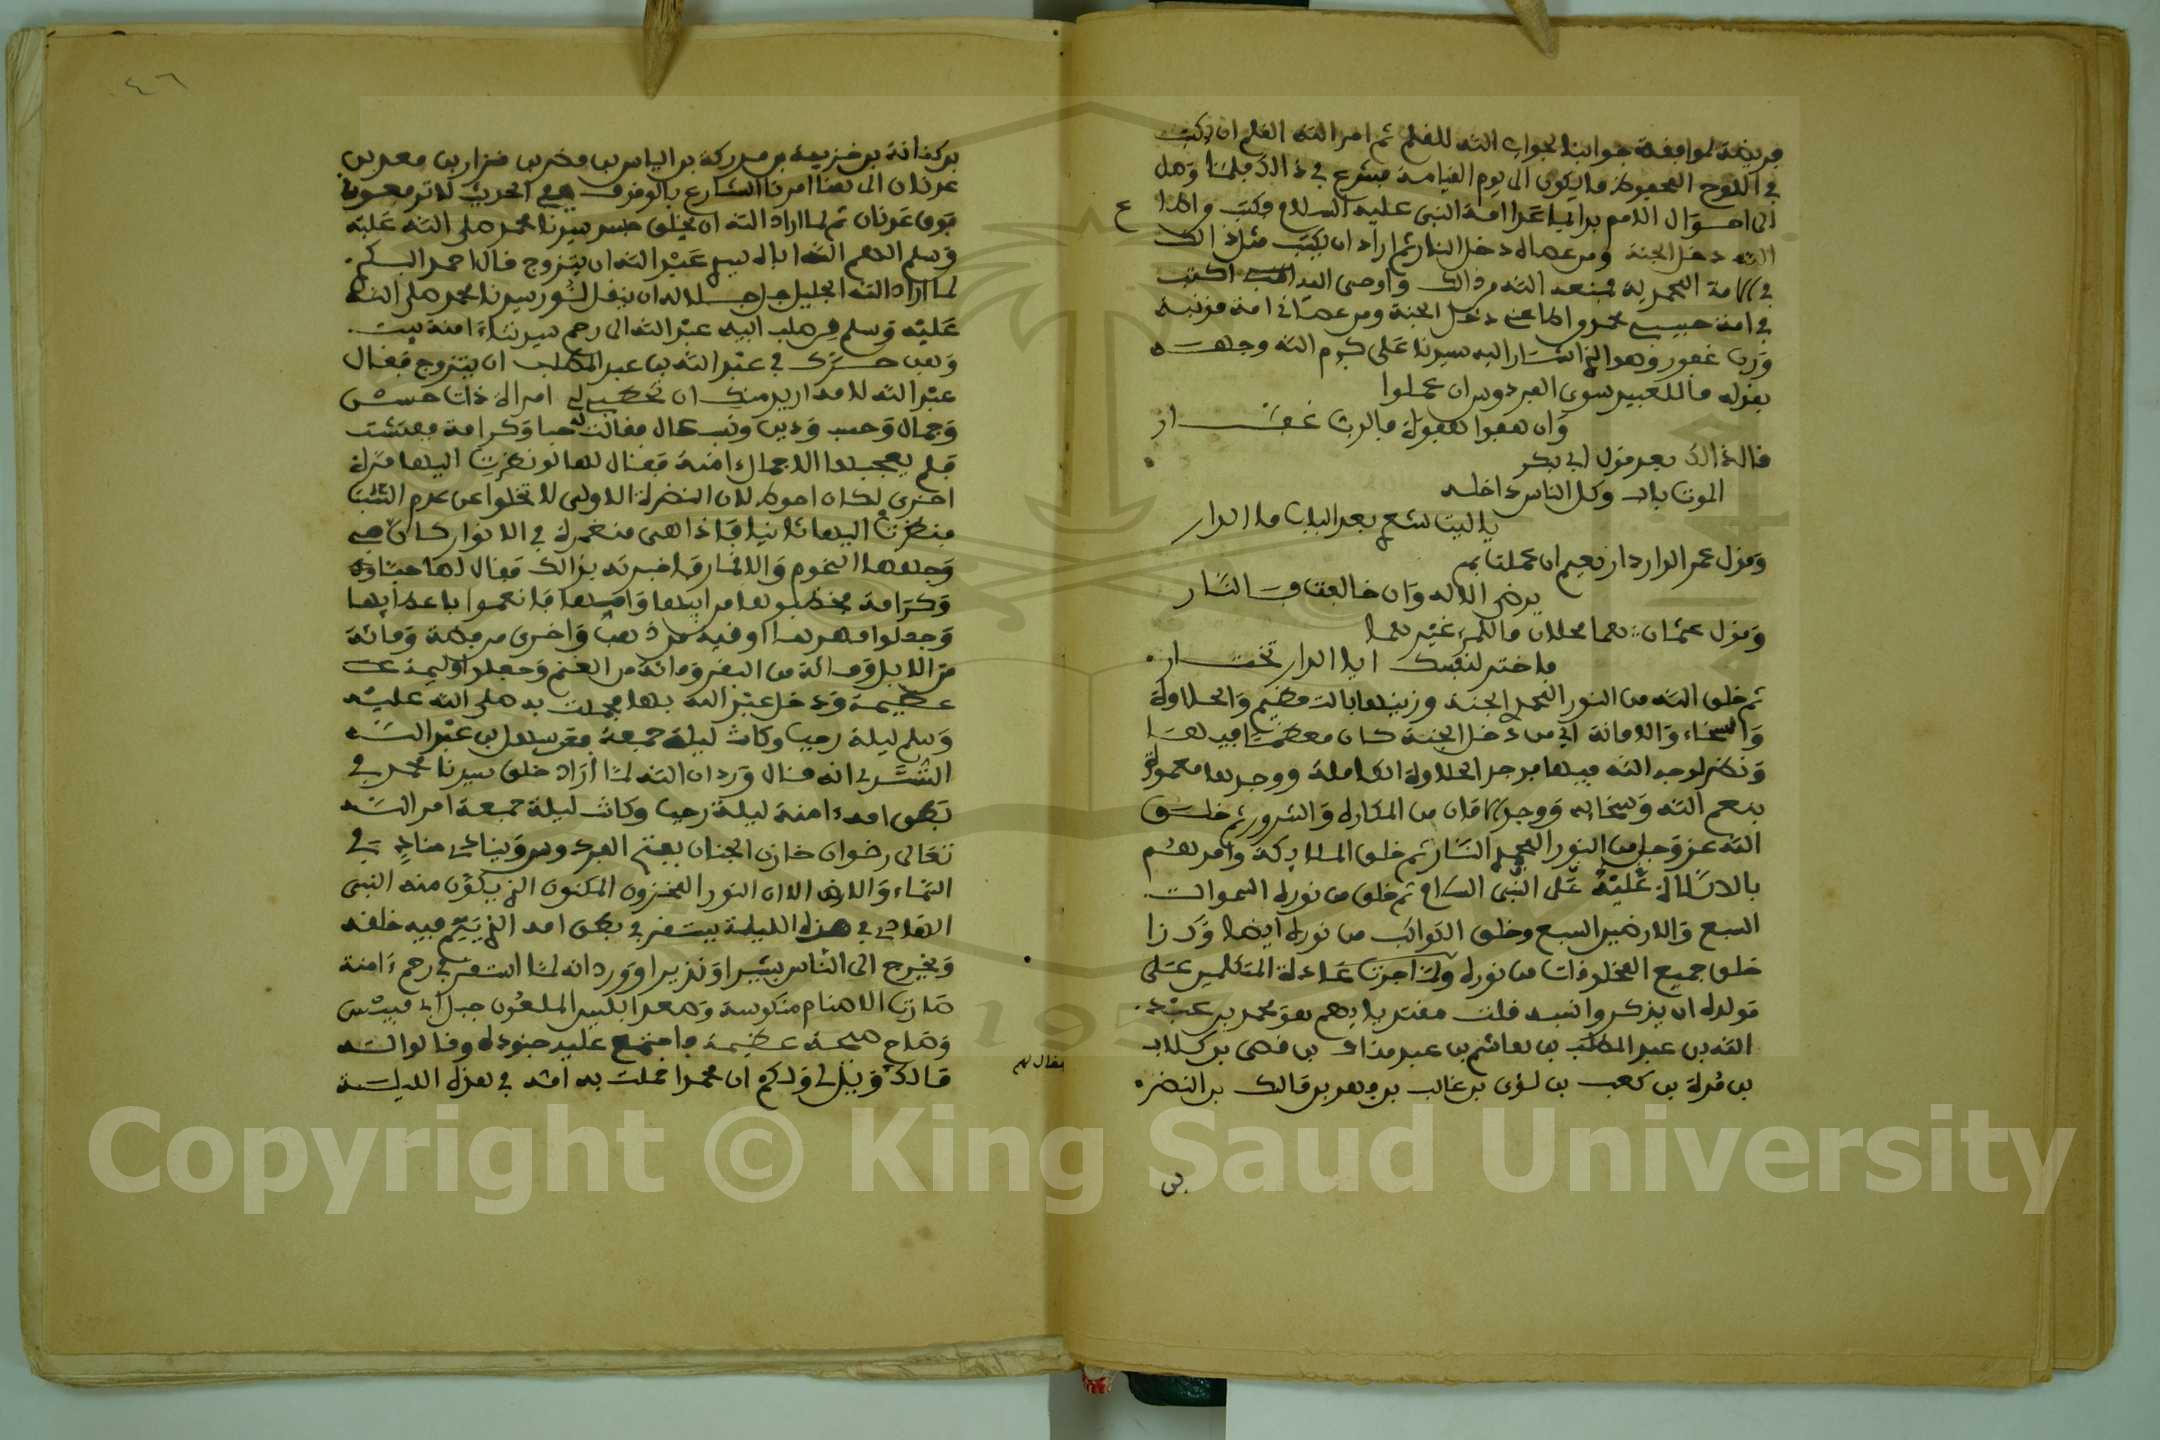 فريضة لموافقة جوابنا لجواب الله للقلم ثم امر الله القلم ان يكتب
في اللوح المحفوظ ما يكون الى يوم القيامة فشرع في ذالك فلما وصل
الى احوال الامم برا ايما عدا امة النبي عليه السلام فكتب
الله دخل الجنة ومن عصاه دخل النار ثم اراد ان يكتب مثل ذالك
في الامة المحمدية فمنعه الله من ذالك واوحى اليه اكتب
في امة حبيبي محمد من اطاعني دخل الجنة ومن عصاني امة مذنبة
ورب غفور وهو الذي اشار اليه سيدنا على كرم الله وجهه
بقوله ما للعبيد سوى الفردوس ان عملوا
وان هفوا هفوة فالرب غفار
قال ذالك بعد قول ابي بكر
الموت باب وكل الناس داخله
يا ليت شعري بعد الباب ما الدار
وقول عمر الدار دار نعيم ان عملت بما
يرضي الاله وان خالفت فالنار
وقول عثمان هما محلان ما للمرء غيرهما
فاختر لنفسك اي الدار تختار
ثم خلق الله من النور المحمدي الجنة وزينها بالتعظيم والحلاوة
والسخاء والامانة اي من دخل الجنة كان معظما فيها
ونظر لوجه الله فيها فوجد الحلاوة الكاملة ووجدها معمورة
بنعم الله وسخايه ووجد الامان من المكاره والشرور ثم خلق
الله عز وجل من النور المحمدي النار ثم خلق الملايكة وامرهم
بالصلاة عليه على النبي ثم خلق من نوره السموات
السبع والارضين السبع وخلق الكواكب من نوره ايضا وكذا
خلق جميع المخلوقات من نوره ولما جرت عادة المتكلمين على
مولده ان يذكروا نسبه قلت مقتديا بهم هو محمد بن عبد
الله بن عبد المطلب بن هاشم بن عبد مناف بن قصي بن كلاب
بن مرة بن كعب بن لؤي بن غالب بن فهر بن مالك بن النضر
بن
٤٦
بن كنانة بن خزيمة بن مدركة بن الياس بن مضر بن نزار بن معد بن
عدنان الى هنا امرنا الشارع بالوقوف ففي الحديث لا ترفعوني
فوق عدنان ثم لما اراد الله ان يخلق جسد سيدنا محمد صلى الله عليه
وسلم الهم الله اباه سيدي عبد الله ان يتزوج قال احمد البكري
لما اراد الله الجليل جل جلاله ان ينقل نور سيدنا محمد صلى الله
عليه وسلم من صلب ابيه عبد الله الى رحم سيدتنا ءامنة بنت
وهب حرك في عبد الله بن عبد المطلب ان يتزوج فقال
عبد الله لامه اريد منك ان تخطبي لي امراة ذات حسن
وجمال وحسب ودين ونسب عال فقالت له حبا وكرامة ففتشت
فلم يعجبها الا جمال ءامنة فقال لها لو نظرت اليها مرة
اخرى لكان احوط لان النظرة الاولى لا تخلوا عن عدم التثبت
فنظرت اليها ثانيا فاذا هي منغمرة في الانوار كان في
وجهها النجوم والاقمار فاخبرته بذالك فقال لها حبا
وكرامة فخطبوها من ابيها وامها فانعموا باعطايها
وجعلوا مهرها اوقية من ذهب واخرى من فضة ومائة
من الابل ومائة من البقر ومائة من الغنم وجعلوا وليمة
عظيمة ودخل عبد الله بها فحملت به صلى الله عليه
وسلم ليلة رجب وكانت ليلة جمعة فعن سهل بن عبد الله
التستري انه قال ورد ان الله لما اراد خلق سيدنا محمد في
بطن امه ءامنة ليلة رجب وكانت ليلة جمعة امر الله
تعالى رضوان خازن الجنان بفتح الفردوس وينادي مناد في
السماء والارض الا ان النور المخزون المكنون الذي يكون منه النبي
الهادي في هذه الليلة يستقر في بطن امه الذي يتم فيه خلقه
ويخرج الى الناس بشيرا ونذيرا وورد انه لما استقر في رحم ءامنة
صارت الاصنام منكوسة وصعد ابليس الملعون جبل ابي قبيس
وصاح صيحة عظيمة فاجتمع عليه جنوده وقالوا له
مالك فقال لهم ويلي ويلكم ان محمدا حملت به امه في هذه الليلة
Copyright © King Saud University
1957